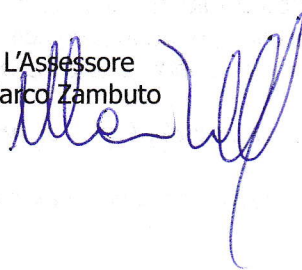 L'Assessore
arco Zambuto